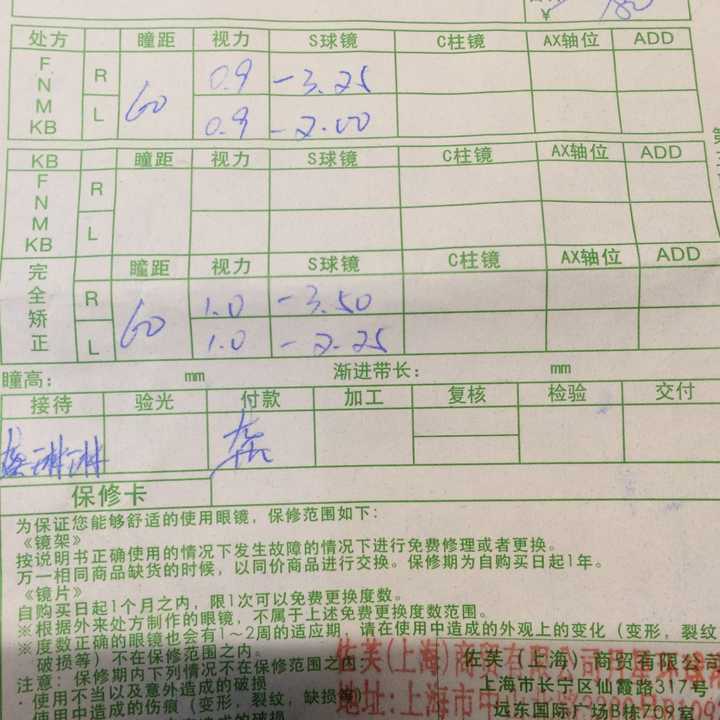 ¥ 180
处方 瞳距 视力 S球镜 C柱镜 AX轴位 ADD
F N M KB R 60 0.9 -3.25
L 0.9 -2.00
KB 瞳距 视力 S球镜 C柱镜 AX轴位 ADD
F N M KB R
L
瞳距 视力 S球镜 C柱镜 AX轴位 ADD
完全矫正 R 60 1.0 -3.50
L 1.0 -2.25
瞳高： mm 渐进带长： mm
接待 验光 付款 加工 复核 检验 交付
淋淋 龚
保修卡
为保证您能够舒适的使用眼镜，保修范围如下：
《镜架》
按说明书正确使用的情况下发生故障的情况下进行免费修理或者更换。
万一相同商品缺货的时候，以同价商品进行交换。保修期为自购买日起1年。
《镜片》
自购买日起1个月之内，限1次可以免费更换度数。
※根据外来处方制作的眼镜，不属于上述免费更换度数范围。
※度数正确的眼镜也会有1～2周的适应期 请在使用中造成的外观上的变化（变形，裂纹
破损等）不在保修范围之内。
注意：保修期内下列情况不在保修范围之内：
·使用不当以及意外造成的破损
使用中造成的伤痕（变形，裂纹，缺损等）
佐芙(上海)商贸有限公司
地址:上海市
佐芙（上海）商贸有限公司
上海市长宁区仙霞路317号
远东国际广场B栋709室